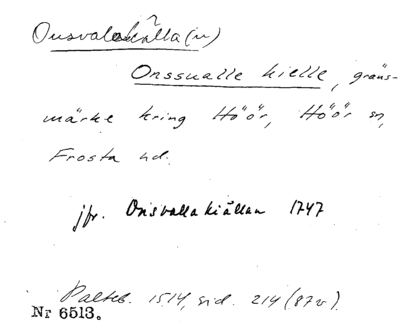 Onsvalakälla(n)
Onssualle kielle, gräns-
märke kring Höör, Höör sn,
Frosta hd.
jfr. Onsvalla kiällan 1747
Palteb. 1514, sid. 214 (87v).
Nr 6513.